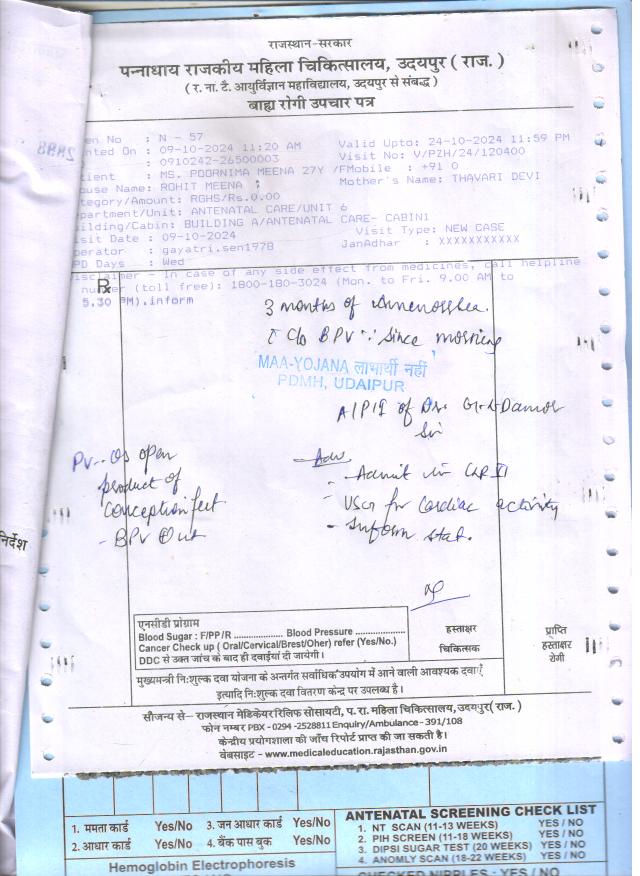 राजस्थान-सरकार
पन्नाधाय राजकीय महिला चिकित्सालय, उदयपुर ( राज. )
( र. ना. टै. आयुर्विज्ञान महाविद्यालय, उदयपुर से संबद्ध )
बाह्य रोगी उपचार पत्र
en No : N - 57
nted On : 09-10-2024 11:20 AM Valid Upto: 24-10-2024 11:59 PM
: 0910242-26500003 Visit No: V/PZH/24/120400
tient : MS. POORNIMA MEENA 27Y /FMobile : +91 0
ouse Name: ROHIT MEENA : Mother's Name: THAVARI DEVI
tegory/Amount: RGHS/Rs.0.00
partment/Unit: ANTENATAL CARE/UNIT 6
ilding/Cabin: BUILDING A/ANTENATAL CARE- CABIN1
sit Date : 09-10-2024 Visit Type: NEW CASE
perator : gayatri.sen197B JanAdhar : XXXXXXXXXXX
PD Days : Wed
isclaimer - In case of any side effect from medicines, call helpline
℞ number (toll free): 1800-180-3024 (Mon. to Fri. 9.00 AM to
5.30 PM).inform
3 months of Amenorrhea.
c C/o BPV ∵ since morning
MAA-YOJANA लाभार्थी नहीं
PDMH, UDAIPUR
of Dr. Damor
Sir
Pv-- Os open
product of
conception felt
- BPV
Adv
- Admit in
- USG for cardiac activity
- Inform stat.
निर्देश
एनसीडी प्रोग्राम
Blood Sugar : F/PP/R .................. Blood Pressure ..................
Cancer Check up ( Oral/Cervical/Brest/Oher) refer (Yes/No.)
DDC से उक्त जांच के बाद ही दवाईयां दी जायेगी।
हस्ताक्षर
चिकित्सक
प्राप्ति
हस्ताक्षर
रोगी
मुख्यमंत्री निःशुल्क दवा योजना के अन्तर्गत सर्वाधिक उपयोग में आने वाली आवश्यक दवाएं
इत्यादि निःशुल्क दवा वितरण केन्द्र पर उपलब्ध है।
सौजन्य से- राजस्थान मेडिकेयर रिलिफ सोसायटी, प. रा. महिला चिकित्सालय, उदयपुर( राज. )
फोन नम्बर PBX - 0294 -2528811 Enquiry/Ambulance - 391/108
केन्द्रीय प्रयोगशाला की जाँच रिपोर्ट प्राप्त की जा सकती है।
वेबसाइट - www.medicaleducation.rajasthan.gov.in
1. ममता कार्ड Yes/No 3. जन आधार कार्ड Yes/No
2. आधार कार्ड Yes/No 4. बैंक पास बुक Yes/No
Hemoglobin Electrophoresis
ANTENATAL SCREENING CHECK LIST
1. NT SCAN (11-13 WEEKS) YES / NO
2. PIH SCREEN (11-18 WEEKS) YES / NO
3. DIPSI SUGAR TEST (20 WEEKS) YES / NO
4. ANOMLY SCAN (18-22 WEEKS) YES / NO
CHECKED NIPPLES - YES / NO